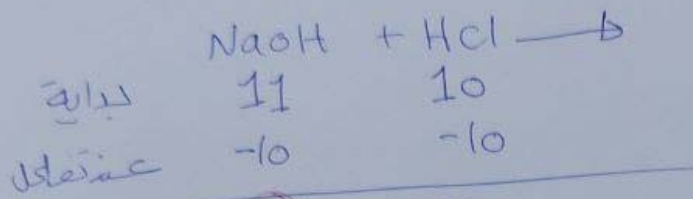 NaOH + HCl →
بداية 11 10
عند تفاعل -10 -10